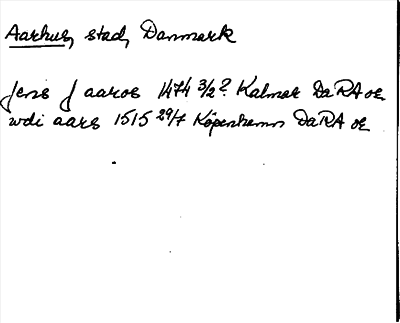 Aarhus, stad, Danmark
Jens J aaros 1474 3/2? Kalmar DaRA oe
udi aars 1515 29/7 Köpenhamn DaRA oe